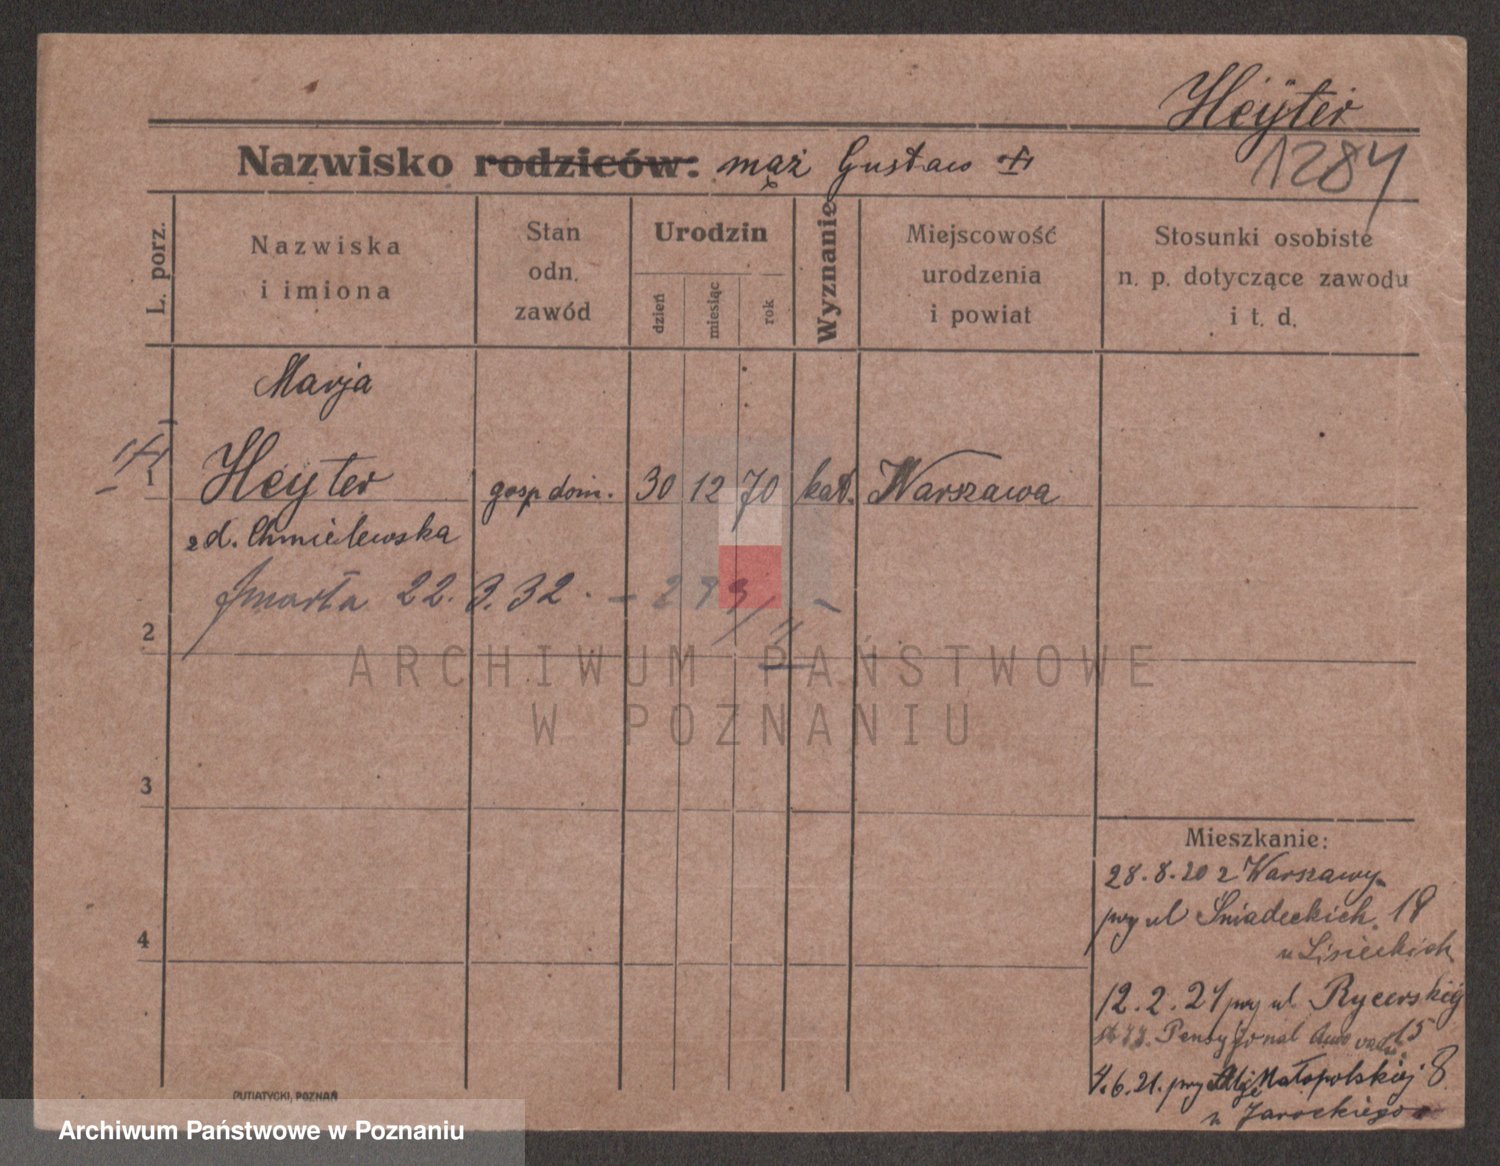 Heyter
1284
Nazwisko rodziców: mąż Gustaw
L. porz.
Nazwiska
i imiona
Stan
odn.
zawód
Urodzin
dzień
miesiąc
rok
Wyznanie
Miejscowość
urodzenia
i powiat
Stosunki osobiste
n. p. dotyczące zawodu
i t. d.
Marja
1 Heyter gosp dom. 30 12 70 kat. Warszawa
zd. Chmielewska
zmarła 22.3.32.
2
3
4
ARCHIWUM PAŃSTWOWE
W POZNANIU
Mieszkanie:
28.8.20 z Warszawy
przy ul Śniadeckich 18
u Lisieckich
12.2.21 przy ul. Rycerskiej
Pensyjonat 15
4.6.21. przy Małopolskiej 8
u Jarockiego
PUTIATYCKI, POZNAŃ
Archiwum Państwowe w Poznaniu